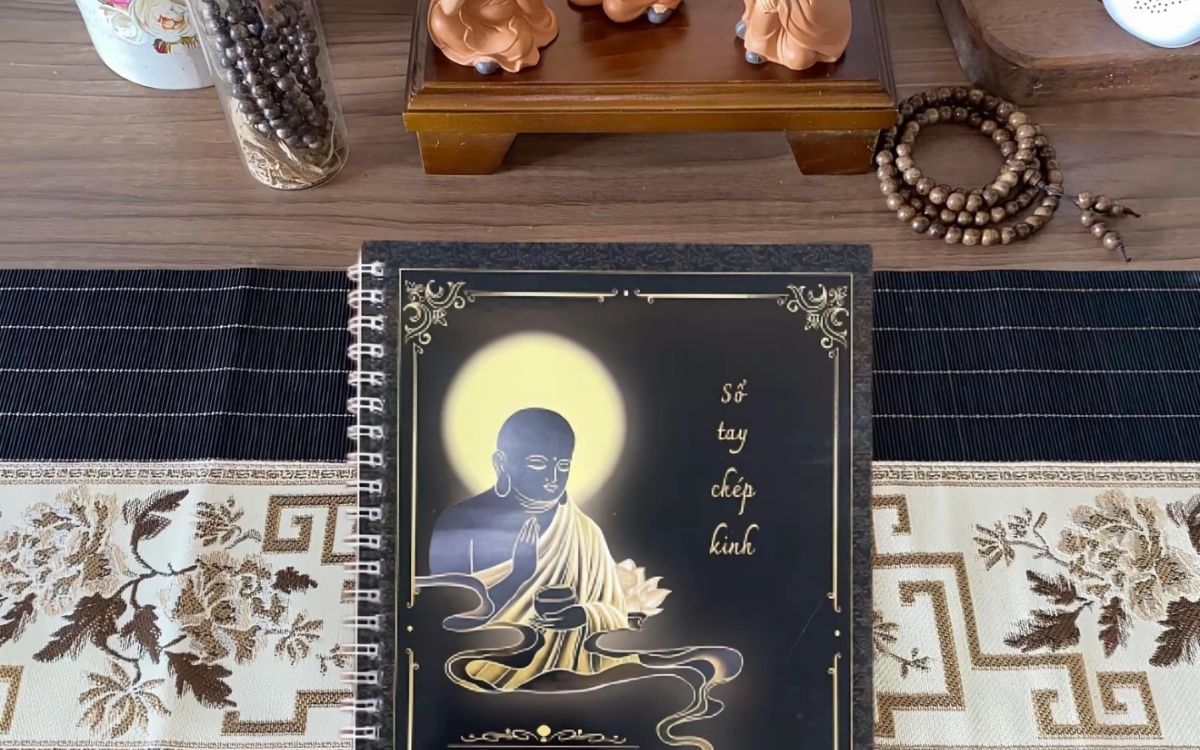 Sổ
tay
chép
kinh